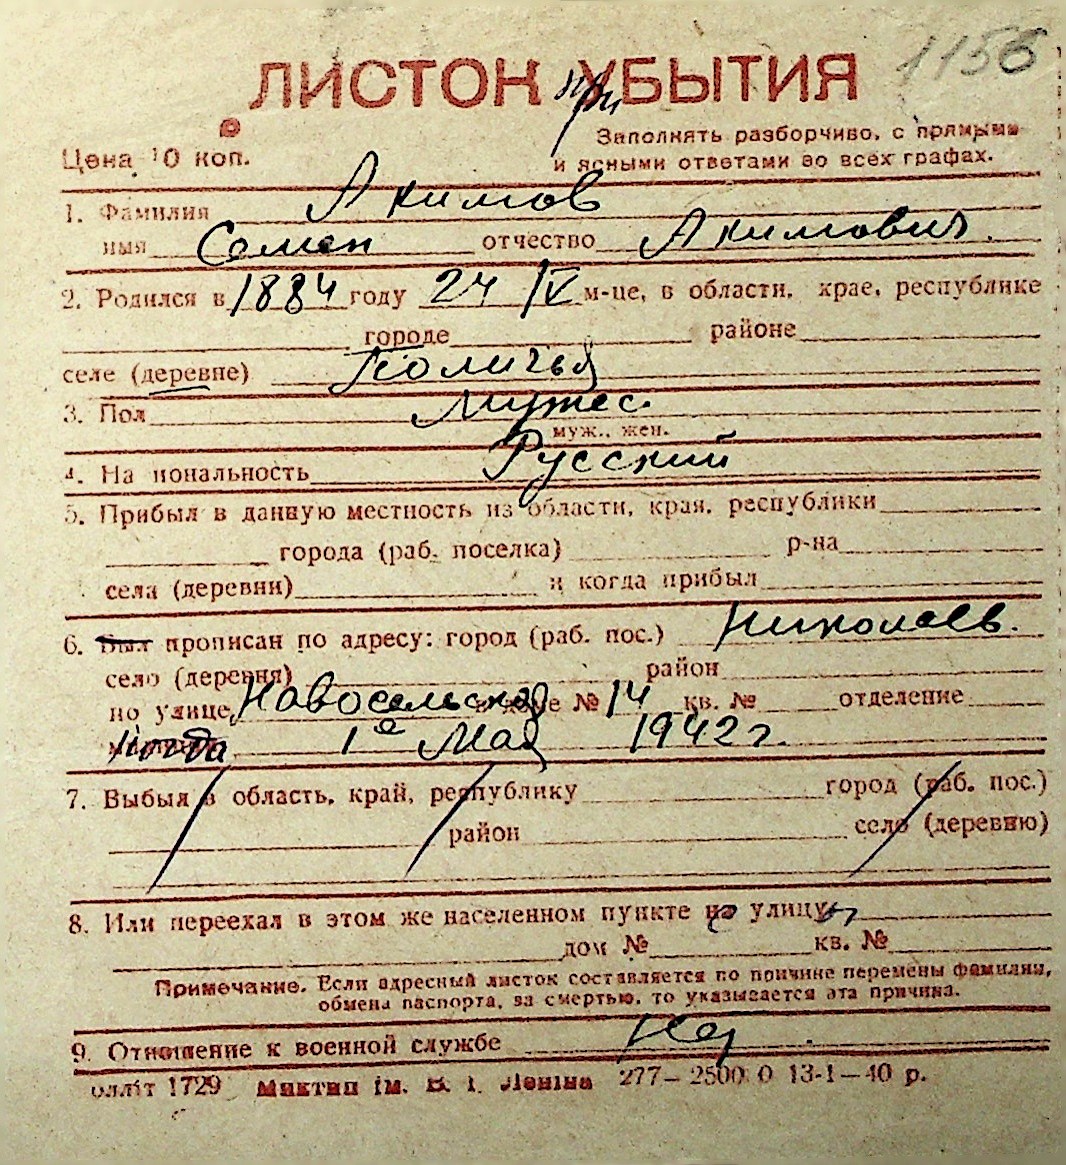 1156
ЛИСТОК при УБЫТИЯ
Цена 10 коп.
Заполнять разборчиво, с прямыми
и ясными ответами во всех графах.
1. Фамилия Акимов
имя Семен отчество Акимович.
2. Родился в 1884 году 24 IV м-це, в области, крае, республике
городе районе
селе (деревне)
3. Пол Мужес.
муж., жен.
4. На иональность Русский
5. Прибыл в данную местность из области, края, республики
города (раб. поселка) р-на
села (деревни) и когда прибыл
6. Был прописан по адресу: город (раб. пос.) Николаев.
село (деревня) район
по улице Новосельская доме № 14 кв. № отделение
Когда 1е Мая 1942 г.
7. Выбыл в область, край, республику город (раб. пос.)
район село (деревню)
8. Или переехал в этом же населенном пункте улицу
дом № кв. №
Примечание. Если адресный листок составляется по причине перемены фамилии,
обмена паспорта, за смертью, то указывается эта причина.
9. Отношение к военной службе Нет
оллiт 1729 iм. В. I. Ленiна 277— 2500 0 13-1—40 р.